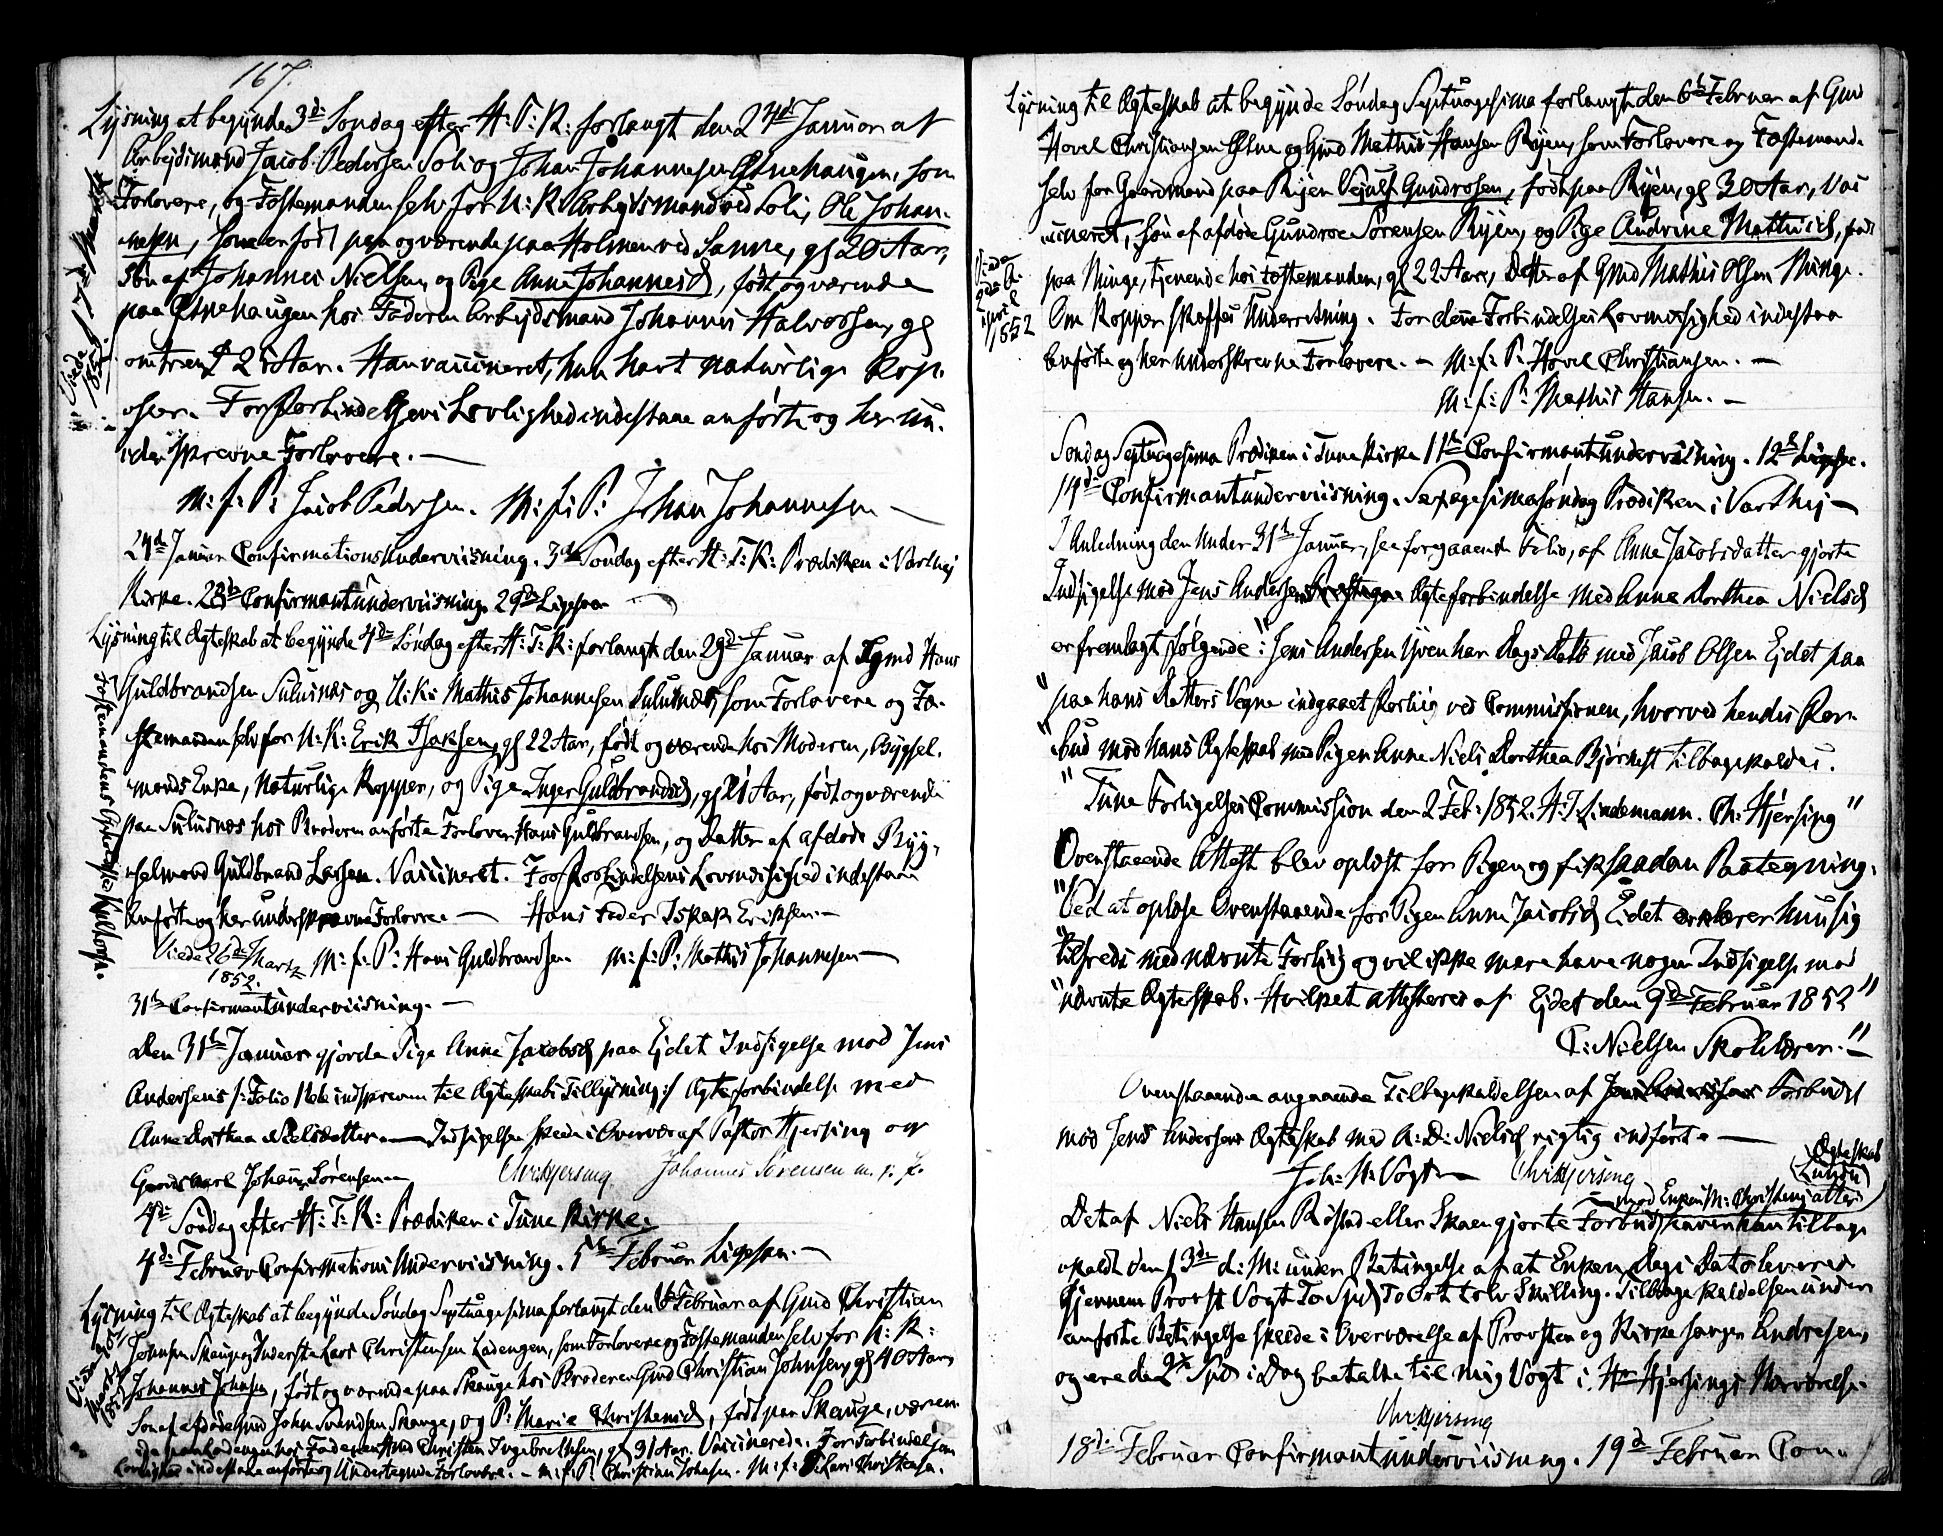 167.
Lysning at begynde 3d: Søndag efter H: T: K: forlangt den 24d Januar af
Arbejdsmand Jacob Pedersen Soli og Johan Johannesen Ølnehaugen, som
Forlovere, og Fæstemanden selv for U: K: Arbejdsmand ved Soli, Ole Johan-
nesen, som er født paa og værende paa Holmen ved Sanne, gl 20 Aar,
Søn af Johannes Nielsen, og Pige Anne Johannesd, født og værende
paa Ølnehaugen hos Faderen Arbejdsmand Johannes Halvorsen, gl
omtrent 21 Aar. Han vaccineret, hun havt naturlige Kop-
per. For Forbindelsens Lovlighed indestaae anførte og her un-
derskrevne Forlovere. —
M: f: P: Jacob Pedersen. M: f: P: Johan Johannesen —
24d Januar Confirmations Underviisning. 3die Søndag efter H: T: K: Prædiken i Varteig
Kirke. 28de Confirmantunderviisning. 29de Ligesaa
Lysning til Ægteskab at begynde 4de Søndag efter H: T: K: forlangt den 29d Januar af Hans
Guldbrandsen Sulusnæs og U: K: Mathis Johannesen Sulusnæs, som Forlovere og Fæ-
stemanden selv for U: K: Erik Isaksen, gl 22 Aar, født og værende hos Moderen, Bygsel-
mands Enke, Naturlige Kopper, og Pige Inger Guldbrandsd, gl 21 Aar, født og værende
paa Sulusnæs hos Broderen anførte Forlover Hans Guldbrandsen, og Datter af afdøde Byg-
selmand Guldbrand Larsen. Vaccineret. For Forbindelsens Lovmæsighed indestaae
Anførte og her underskrevne Forlovere — Hans Fader Isak Eriksen. —
Viede 26de Marts 1852. M: f: P: Hans Guldbrandsen M: f: P: Mathis Johannesen —
31te Confirmantunderviisning. —
Den 31te Januar gjorde Pige Anne Jacobsd paa Ejdet Indsigelse mod Jens
Andersens /: Folio indskreven til Ægteskabs Tillysning :/ Ægteforbindelse med
Anne Dorthea Nielsdatter — Indsigelsen skede i Overvær af Pastor Hjersing og
Johannes Sørensen —
Chr Hjersing Johannes Sörensen m. p. P.
4de Søndag efter H: T: K: Prædiken i Tune Kirke.
4de Februar Confirmations Underviisning. 5te Februar Ligesaa. —
Lysning til Ægteskab at begynde Søndag Septuagesima forlangt den 6 Februar af Gmd Christian
Johnsen Skauge og Inderste Lars Christensen Ladengen, som Forlovere og Fæstemanden selv for U: K:
Johannes Johnsen, født og værende paa Skauge hos Broderen Gmd Christian Johnsen, gl 40 Aar,
Søn af afdøde Gmd John Svendsen Skauge, og P: Marie Christensd, født paa Skauge, væren-
de paa Ladengen hos Faderen Gmd Christen Ingebretsen, gl 31 Aar. Vaccinerede. For Forbindelsens
Lovlighed indestaae anførte og Undertegnede Forlovere. — M: f: P: Christian Johnsen. M: f: P: Lars Christensen.
Lysning til Ægteskab at begynde Søndag Septuagesima forlangt den 6te Februar af Gmd
Hovel Christiansen Ølne og Gmd Mathis Hansen Ryen, som Forlovere og Fæstemand-
selv for Gaardmand paa Ryen Vejulf Gundrosen, født paa Ryen, gl 30 Aar, Vac
cineret, Søn af afdøde Gundroe Sørensen Ryen, og Pige Andrine Mathiesd, født
paa Minge, tjenende hos Fæstemanden, gl 22 Aar, Datter af Gmd Mathis Olsen Minge.
Om Kopper skaffes Underretning. For denne Forbindelses Lovmæsighed indestaa
anførte og her underskrevne Forlovere. — M: f: P: Hovel Christiansen. —
M: f: P: Mathis Hansen. —
Viede 1852
Søndag Septuagesima Prædiken i Tune Kirke 11te Confirmantunderviisning. 12te Ligesaa.
14d: Confirmantunderviisning. Sexagesima søndag Prædiken i Varthej —
I Anledning den under 31te Januar, see foregaaende Folio, af Anne Jacobsdatter gjorte
Indsigelse mod Jens Andersens Ægteforbindelse med Anne Dorthea Nielsd
er fremlagt følgende: "Jens Andersen Yven har Dags Dato med Jacob Olsen Ejdet paa
"paa hans Datters Vegne indgaaet Forliig ved Commissionen, hvorved hendes For-
"bud mod hans Ægteskab med Pigen Anne Niels Dorthea Bjørnest tilbagekaldes.
"Tune Forligelses Commission den 2 Feb: 1852. H: T Lindemann. Ch: Hjersing"
Ovenstaaende Attest blev oplæst for Pigen og fik saadan Paategning:
"Ved at oplæse Ovenstaaende for Pigen Anne Jacobsd Ejdet erklærer hun sig
"tilfreds med nævnte Forliig og vil ikke mere have nogen Indsigelse mod
"nævnte Ægteskab. Hvilket attesteres af Ejdet dem 9de Februar 1852"
C: Nielsen Skolelærer. "—
Ovenstaaende angaaende Tilbagekaldelsen af Forbudet
mod Jens Andersens Ægteskab med A: D: Nielsd rigtig indført. —
Joh: H: Vogt — Chr Hjersing
Det af Niels Hansen Röstad eller Skaen gjorte Forbud mod Enken M: Christensdatters Ægteskab haver han tilbage
kaldt den 13de d: M: under Betingelse af at Enken Dags Dato leverer
Gjennem Provst Vogt To Spd, To Ort tolv Skilling. Tilbagekaldelsen under
anførte Betingelse skeede i Overværelse af Provsten og Kirkesanger Andresen,
og ere de 2 Spd i Dag betalte til mig Vogt i Hr Hjersings Nærværelse.
Chr Hjersing
18d: Februar Confirmantunderviisning. 19de Februar Con-